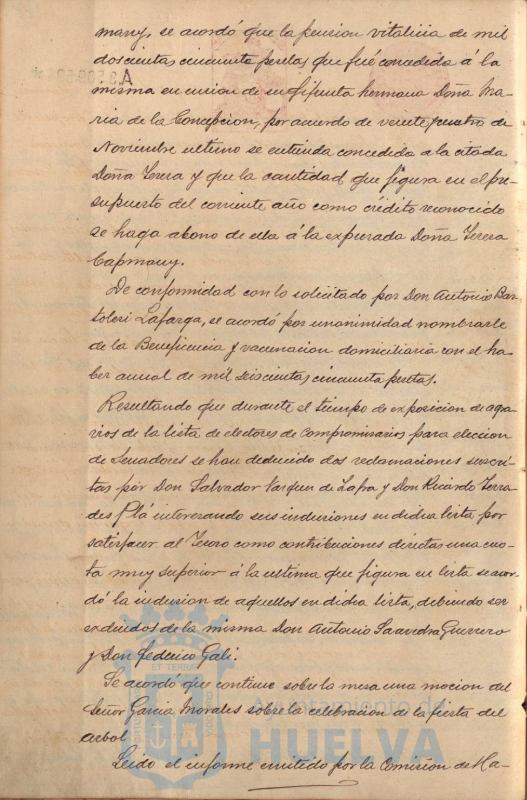 many, se acordó que la pension vitalicia de mil
doscientas cincuenta pesetas que fué concedida á la
misma en union de su difunta hermana Doña Ma-
ria de la Concepcion, por acuerdo de veinte cuatro de
Noviembre ultimo se entienda concedida a la citada
Doña Teresa y que la cantidad que figura en el pre-
supuesto del corriente año como crédito reconocido
se haga abono de ella á la expresada Doña Teresa
Capmany.
De conformidad con lo solicitado por Don Antonio Bar-
toleri Lafarga, se acordó por unanimidad nombrarle
de la Beneficencia y vacunacion domiciliaria con el ha-
ber anual de mil seiscientas cincuenta pesetas.
Resultando que durante el tiempo de exposicion de agra-
vios de la lista de electores de Compromisarios para eleccion
de Senadores se han deducido dos reclamaciones suscri-
tas por Don Salvador Vazquez de Zafra y Don Ricardo Terra-
des Plá interesando sus inclusiones en dicha lista por
satisfacer al Tesoro como contribuciones directas una cuo-
ta muy superior á la ultima que figura en lista se acor-
dó la inclusion de aquellos en dicha lista, debiendo ser
excluidos de la misma Don Antonio Saavedra Guerrero
y Don Federico Gali.
Se acordó que continue sobre la mesa una mocion del
Señor Garcia Morales sobre la celebracion de la fiesta del
arbol
Leido el informe emitido por la Comision de Ha-
Ayuntamiento de
HUELVA